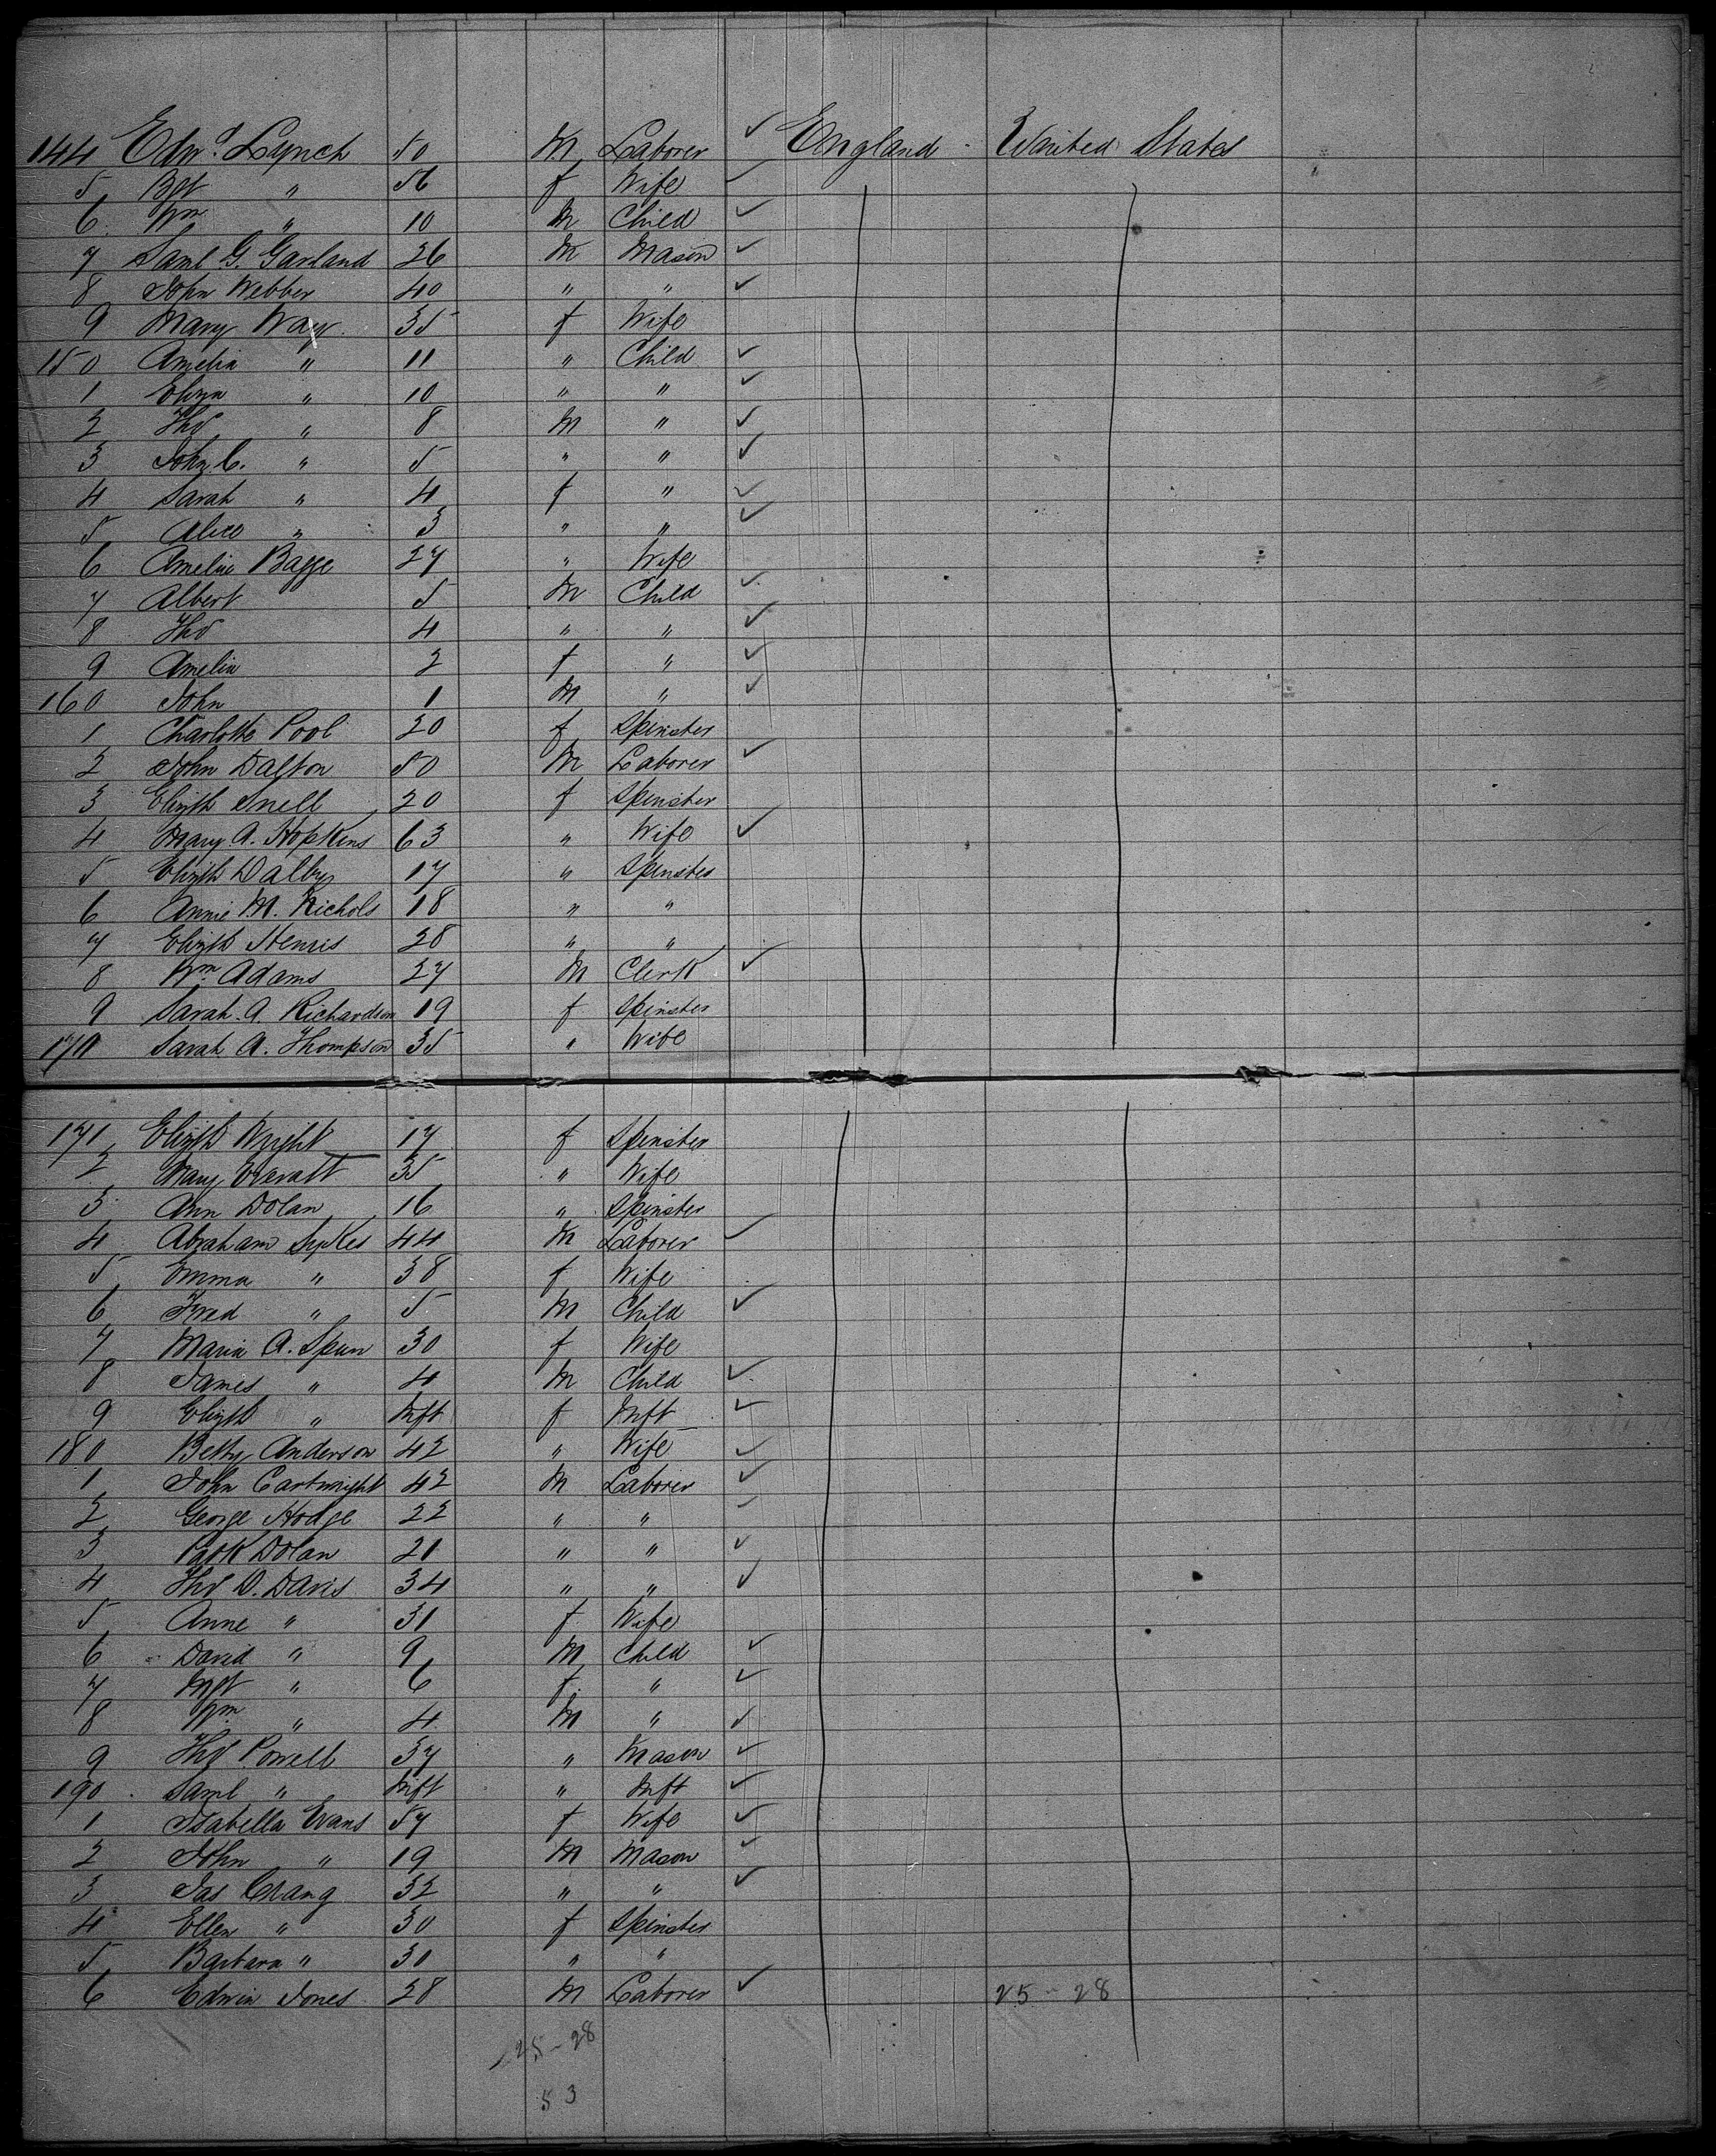 144 Edwd. Lynch 50 M Laborer ✓ England - United States
5 Bgt " 56 f Wife ✓
6 Wm " 10 M Child ✓
7 Saml G. Garland 26 M Mason ✓
8 John Webber 40 " " ✓
9 Mary Way 35 f Wife
150 Amelia " 11 " Child ✓
1 Eliza " 10 " " ✓
2 Tho " 8 M " ✓
3 John C. " 5 " " ✓
4 Sarah " 4 f " ✓
5 Alice " 3 " " ✓
6 Amelia Bagge 27 " Wife
7 Albert 5 M Child ✓
8 Tho 4 " " ✓
9 Amelia 2 f " ✓
160 John 1 M " ✓
1 Charlotte Pool 20 f Spinster
2 John Dalton 50 M Laborer ✓
3 Elizth Snell 20 f Spinster
4 Mary A. Hopkins 63 " Wife ✓
5 Elizth Dalby 17 " Spinster
6 Annie M. Nichols 18 " "
7 Elizth Henris 28 " "
8 Wm Adams 27 M Clerk ✓
9 Sarah A. Richardson 19 f Spinster
170 Sarah A. Thompson 35 " Wife
171 Elizth Wright 17 f Spinster
2 Mary Everatt 35 " Wife
3 Ann Dolan 16 " Spinster
4 Abraham Sykes 44 M Laborer ✓
5 Emma " 38 f Wife
6 Fred " 5 M Child ✓
7 Maria A. Spurr 30 f Wife
8 James " 4 M Child ✓
9 Elizth " Inft f Inft ✓
180 Betty Anderson 42 " Wife ✓
1 John Cartwright 42 M Laborer ✓
2 George Hodge 22 " " ✓
3 Patk Dolan 21 " " ✓
4 Tho D. Davis 34 " " ✓
5 Anne " 31 f Wife
6 David " 9 M Child ✓
7 Mgt " 6 f " ✓
8 Wm " 4 M " ✓
9 Tho Powell 37 " Mason ✓
190 Saml " Inft " Inft ✓
1 Isabella Evans 57 f Wife ✓
2 John " 19 M Mason ✓
3 Jas Chang 32 " " ✓
4 Ellen " 30 f Spinster
5 Barbara " 30 " "
6 Edwin Jones 28 M Laborer ✓ 25 - 28
25 - 28
53